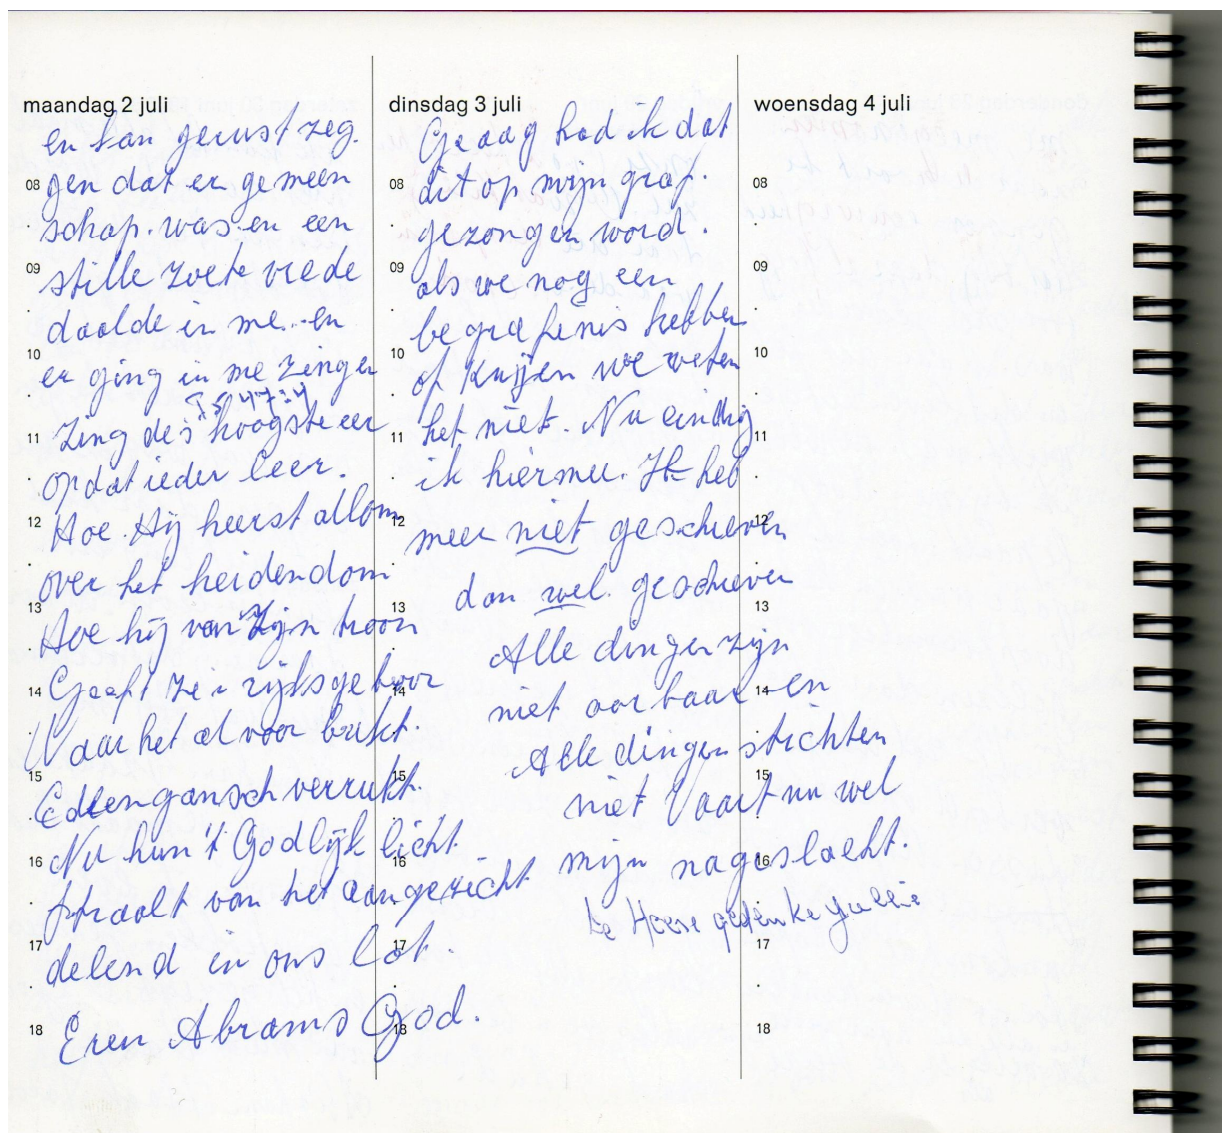 maandag 2 juli
en kan gerust zeg.
08 gen dat er gemeen
schap. was. en een
09 stille zoete vrede
daalde in me. en
10 er ging in me zingen
Ps 47:4
11 Zing des hoogste eer
opdat ieder leer.
12 Hoe Hij heerst allom
over het heidendom
13 Hoe hij van Zijn troon
14 Geeft ze'n rijksgeboon
Waar het al voor bukt.
15 Edlen gansch verrukt.
16 Nu hun 't Godlijk licht
straalt van het aangezicht
17 delend in ons lot.
18 Eren Abrams God.
dinsdag 3 juli
Graag had ik dat
08 dit op mijn graf.
gezongen word.
09 als we nog een
begrafenis hebben
10 of krijen we weten
11 het niet. Nu eindig
ik hiermee. Ik heb
12 meer niet geschreven
dan wel geschreven
13
Alle dingen zijn
14 niet oorbaar en
Alle dingen stichten
15 niet Vaart nu wel
16 mijn nageslacht.
de Heere gedenke jullie
17
18
woensdag 4 juli
08
09
10
11
12
13
14
15
16
17
18